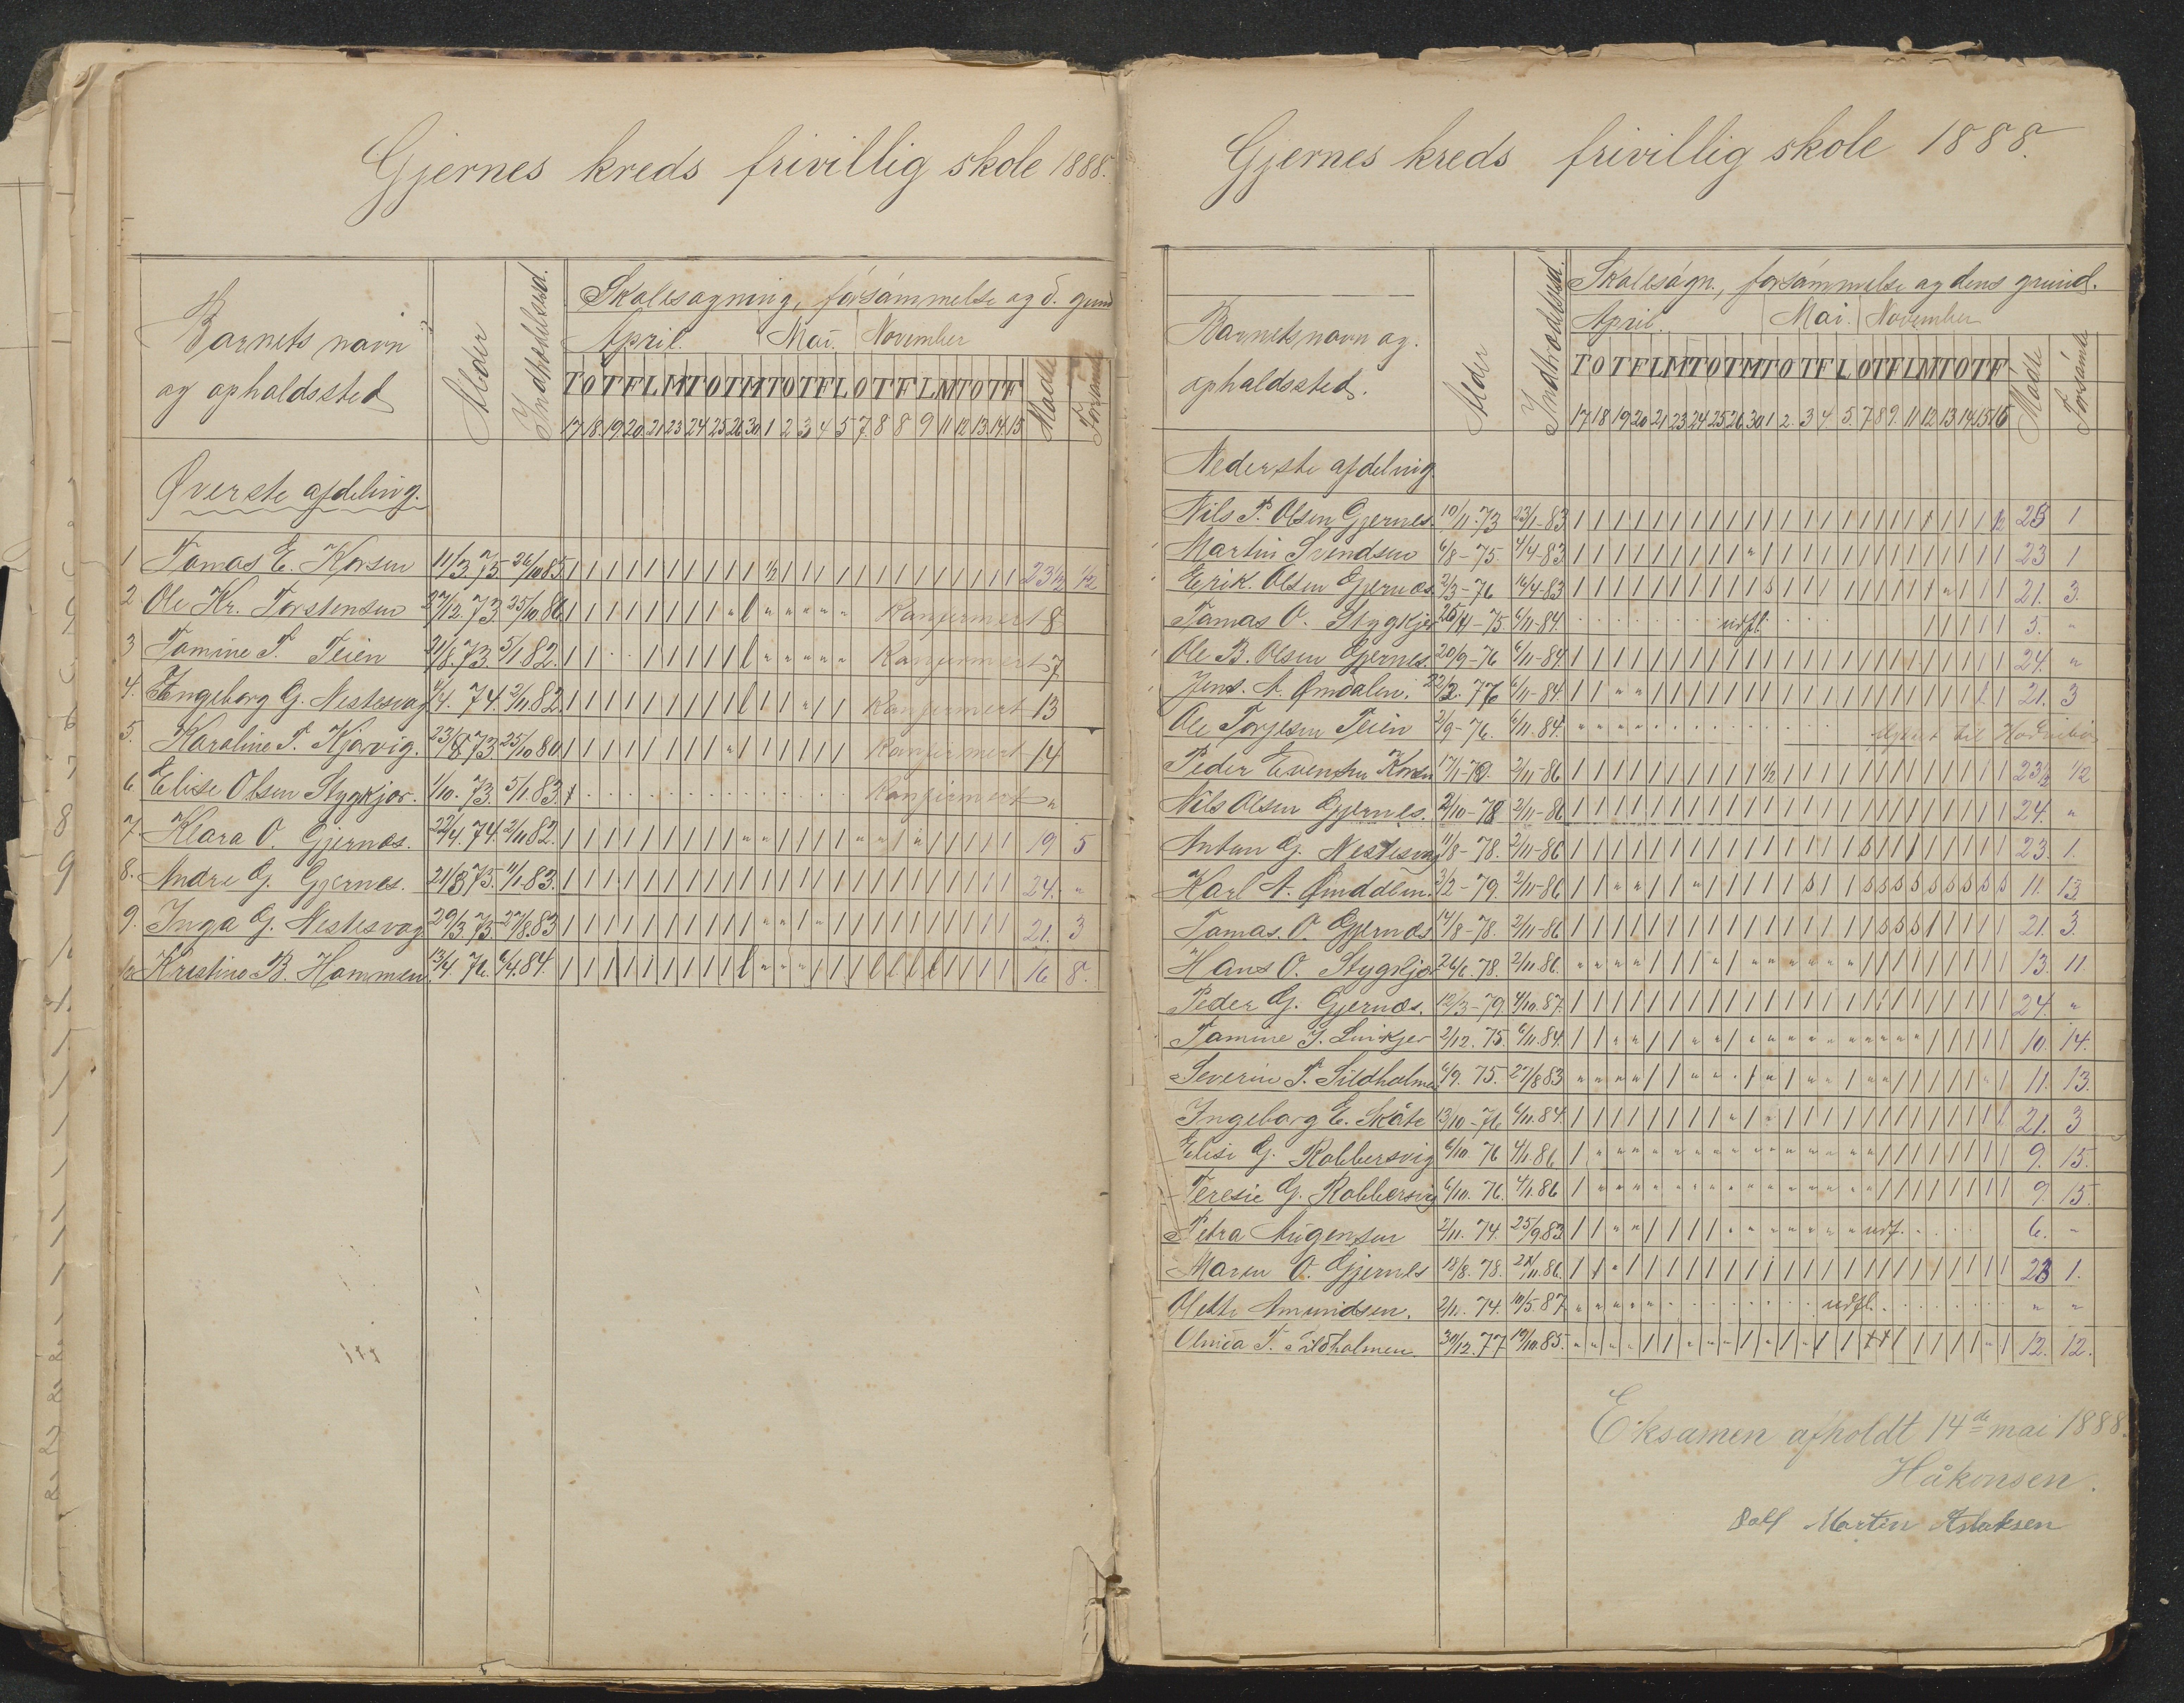 Gjernes kreds frivillig skole 1888.
Barnets navn og opholdssted
Alder
Skolesøgning, forsømmelse og d. grund
April. Mai. November
T O T F L M T O T M T O T F L O T F L M T O T F
17 18 19 20 21 23 24 25 26 30 1 2 3 4 5 7 8 8 9 11 12 13 14 15
Mødte
Forsømte
Øverste afdeling.
1 Tomas E. Korsen 11/3 75. 26/10 85 23½ ½
2 Ole Kr. Torstensen 27/12. 73. 25/10. 86 Konfirmert 8
3 Tomine T. Teien 21/8. 73. 5/1 82. Konfirmert 7
4. Ingeborg G. Nestesvag 4/4. 74. 2/11 82. Konfirmert 13
5. Karoline T. Kjørvig. 23/8 73. 25/10 80. Konfirmert 14
6 Elise Olsen Stygkjær. 1/10. 73. 5/1. 83. Konfirmert "
7. Klara O. Gjernes. 22/4. 74. 2/11 82. 19 5
8. Andre G. Gjernes. 21/8 75. 11/1-83. 24. "
9. Inga G. Nestesvag 29/3. 75. 27/8. 83 21. 3
10 Kristine B. Hommen. 13/4. 76. 6/4. 84. 16 8.
Gjernes kreds frivillig skole 1888.
Barnets navn og opholdssted.
Alder
Indtrædelsestid.
Skolesøgn., forsømmelse og dens grund.
April. Mai. November
T O T F L M T O T M T O T F L O T F L M T O T F
17 18 19 20 21 23 24 25 26 30 1 2. 3 4. 5. 7 8 9. 11 12 13 14 15 16
Mødte
Forsømte
Nederste afdeling.
Nils T. Olsen Gjernes. 10/11. 73 23/1-83 25 1
Martin Svendsen 6/8-75 4/4-83 23 1
Erik. Olsen Gjernes. 2/3-76 16/4-83 21. 3.
Tomas O. Stygkjær 26/4-75 6/11-84. udfl. 5. "
Ole B. Olsen Gjernes. 20/9-76 6/11-84. 24. "
Jens. A. Ømdalen. 22/2. 77 6/11-84. 21. 3
Ole Torjesen Teien 2/9-76. 6/11-84. til
Peder Evensen Korsen 17/1-78. 2/11-86 23½ ½
Nils Olsen Gjernes. 2/10-78 2/11-86 24. "
Anton G. Nestesvag 11/8-78. 2/11-86 23. 1.
Karl A. Ømdalen. 3/2-79. 2/11-86 11. 13.
Tomas. O. Gjernes 14/8-78. 2/11-86 21. 3.
Hans O. Stygkjær 26/6. 78. 2/11 86. 13. 11.
Peder G. Gjernes. 12/3-79. 4/10. 87. 24. "
Tomine J. Linkjer 2/12. 75. 6/11. 84. 10. 14.
Severin T. Sildholmen 6/9. 75. 27/8 83 11. 13.
Ingeborg E. Skåte 13/10-76 6/11. 84. 21. 3
Elise G. Robbersvig 6/10. 76 4/1. 86 9. 15.
Teresie G. Robbersvig 6/10. 76. 4/1. 86 9. 15.
Petra Mugensen 2/11. 74. 25/9 83 udf. 6. "
Maren O. Gjernes 18/8. 78. 2/11. 86. 23 1.
Olette Amundsen. 2/11. 74. 10/5. 87 udfl. " "
Olmia T. Sildholmen. 30/12. 77 19/10. 85. 12. 12.
Eksamen afholdt 14de mai 1888.
Håkonsen.
Martin Aslaksen